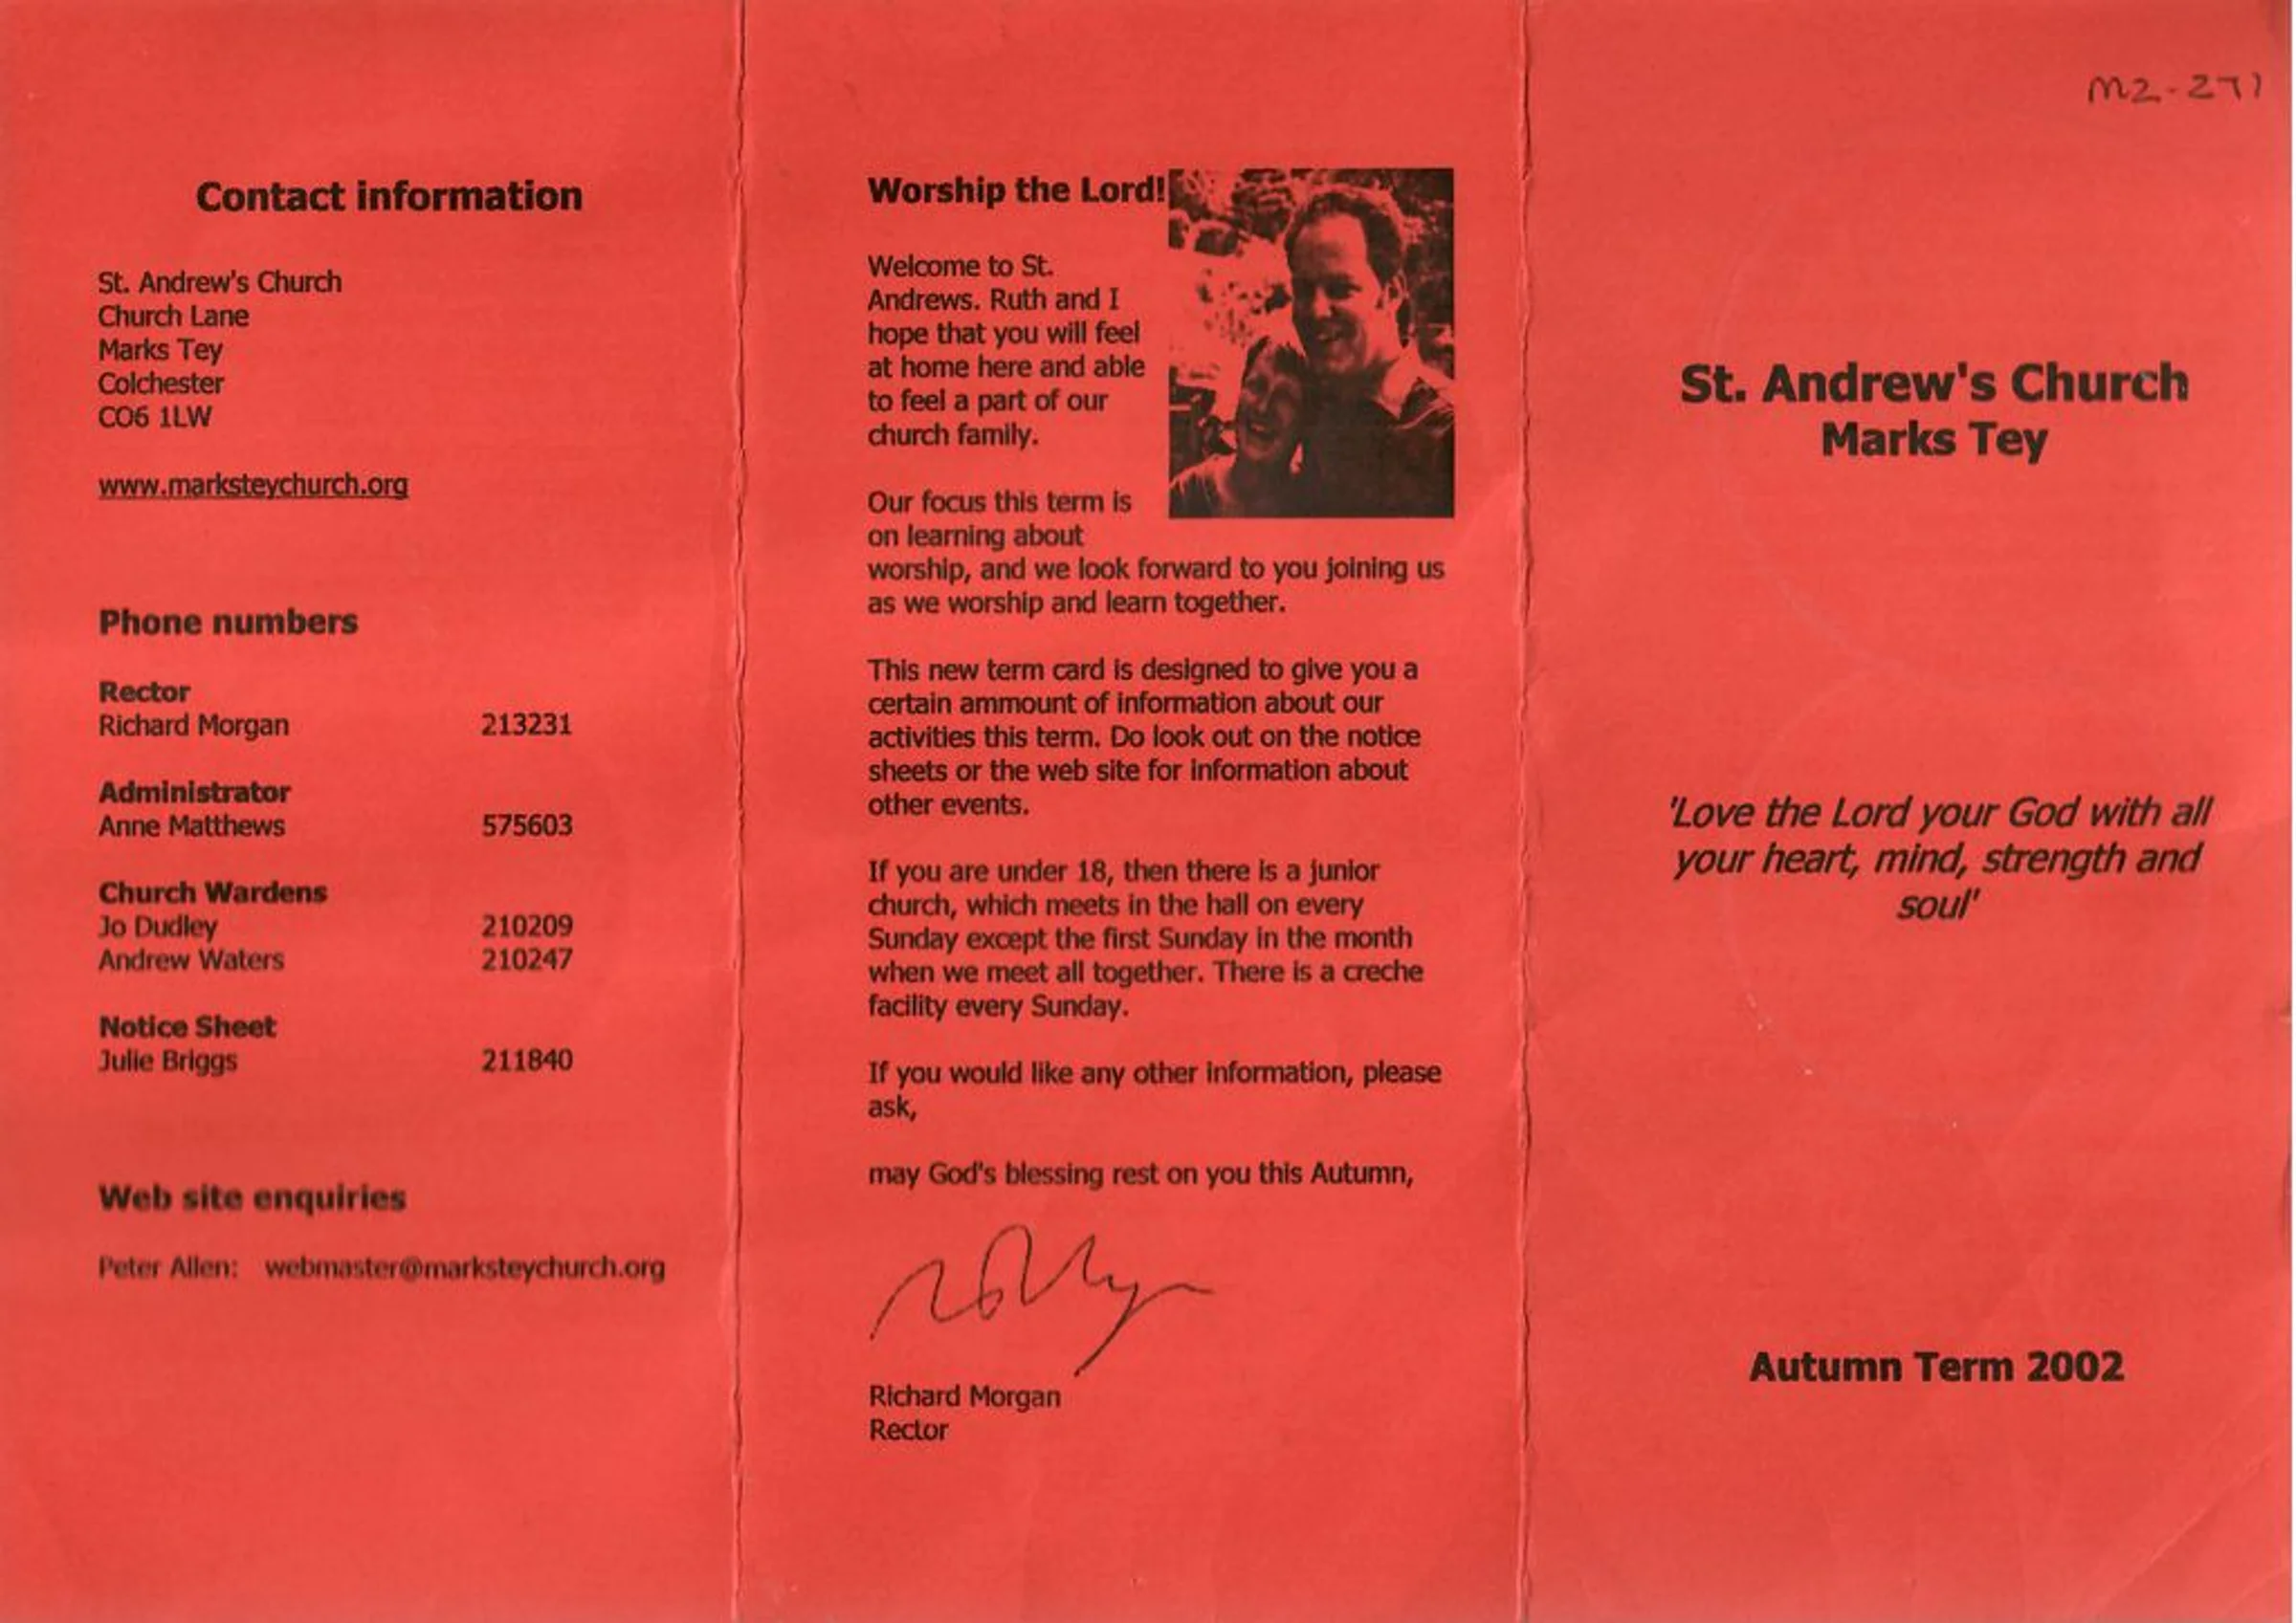 Contact information
St. Andrew's Church
Church Lane
Marks Tey
Colchester
CO6 1LW
www.marksteychurch.org
Phone numbers
Rector
Richard Morgan 213231
Administrator
Anne Matthews 575603
Church Wardens
Jo Dudley 210209
Andrew Waters 210247
Notice Sheet
Julie Briggs 211840
Web site enquiries
Peter Allen: webmaster@marksteychurch.org
Worship the Lord!
Welcome to St.
Andrews. Ruth and I
hope that you will feel
at home here and able
to feel a part of our
church family.
Our focus this term is
on learning about
worship, and we look forward to you joining us
as we worship and learn together.
This new term card is designed to give you a
certain ammount of information about our
activities this term. Do look out on the notice
sheets or the web site for information about
other events.
If you are under 18, then there is a junior
church, which meets in the hall on every
Sunday except the first Sunday in the month
when we meet all together. There is a creche
facility every Sunday.
If you would like any other information, please
ask,
may God's blessing rest on you this Autumn,
Richard Morgan
Rector
M2-271
St. Andrew's Church
Marks Tey
'Love the Lord your God with all
your heart, mind, strength and
soul'
Autumn Term 2002